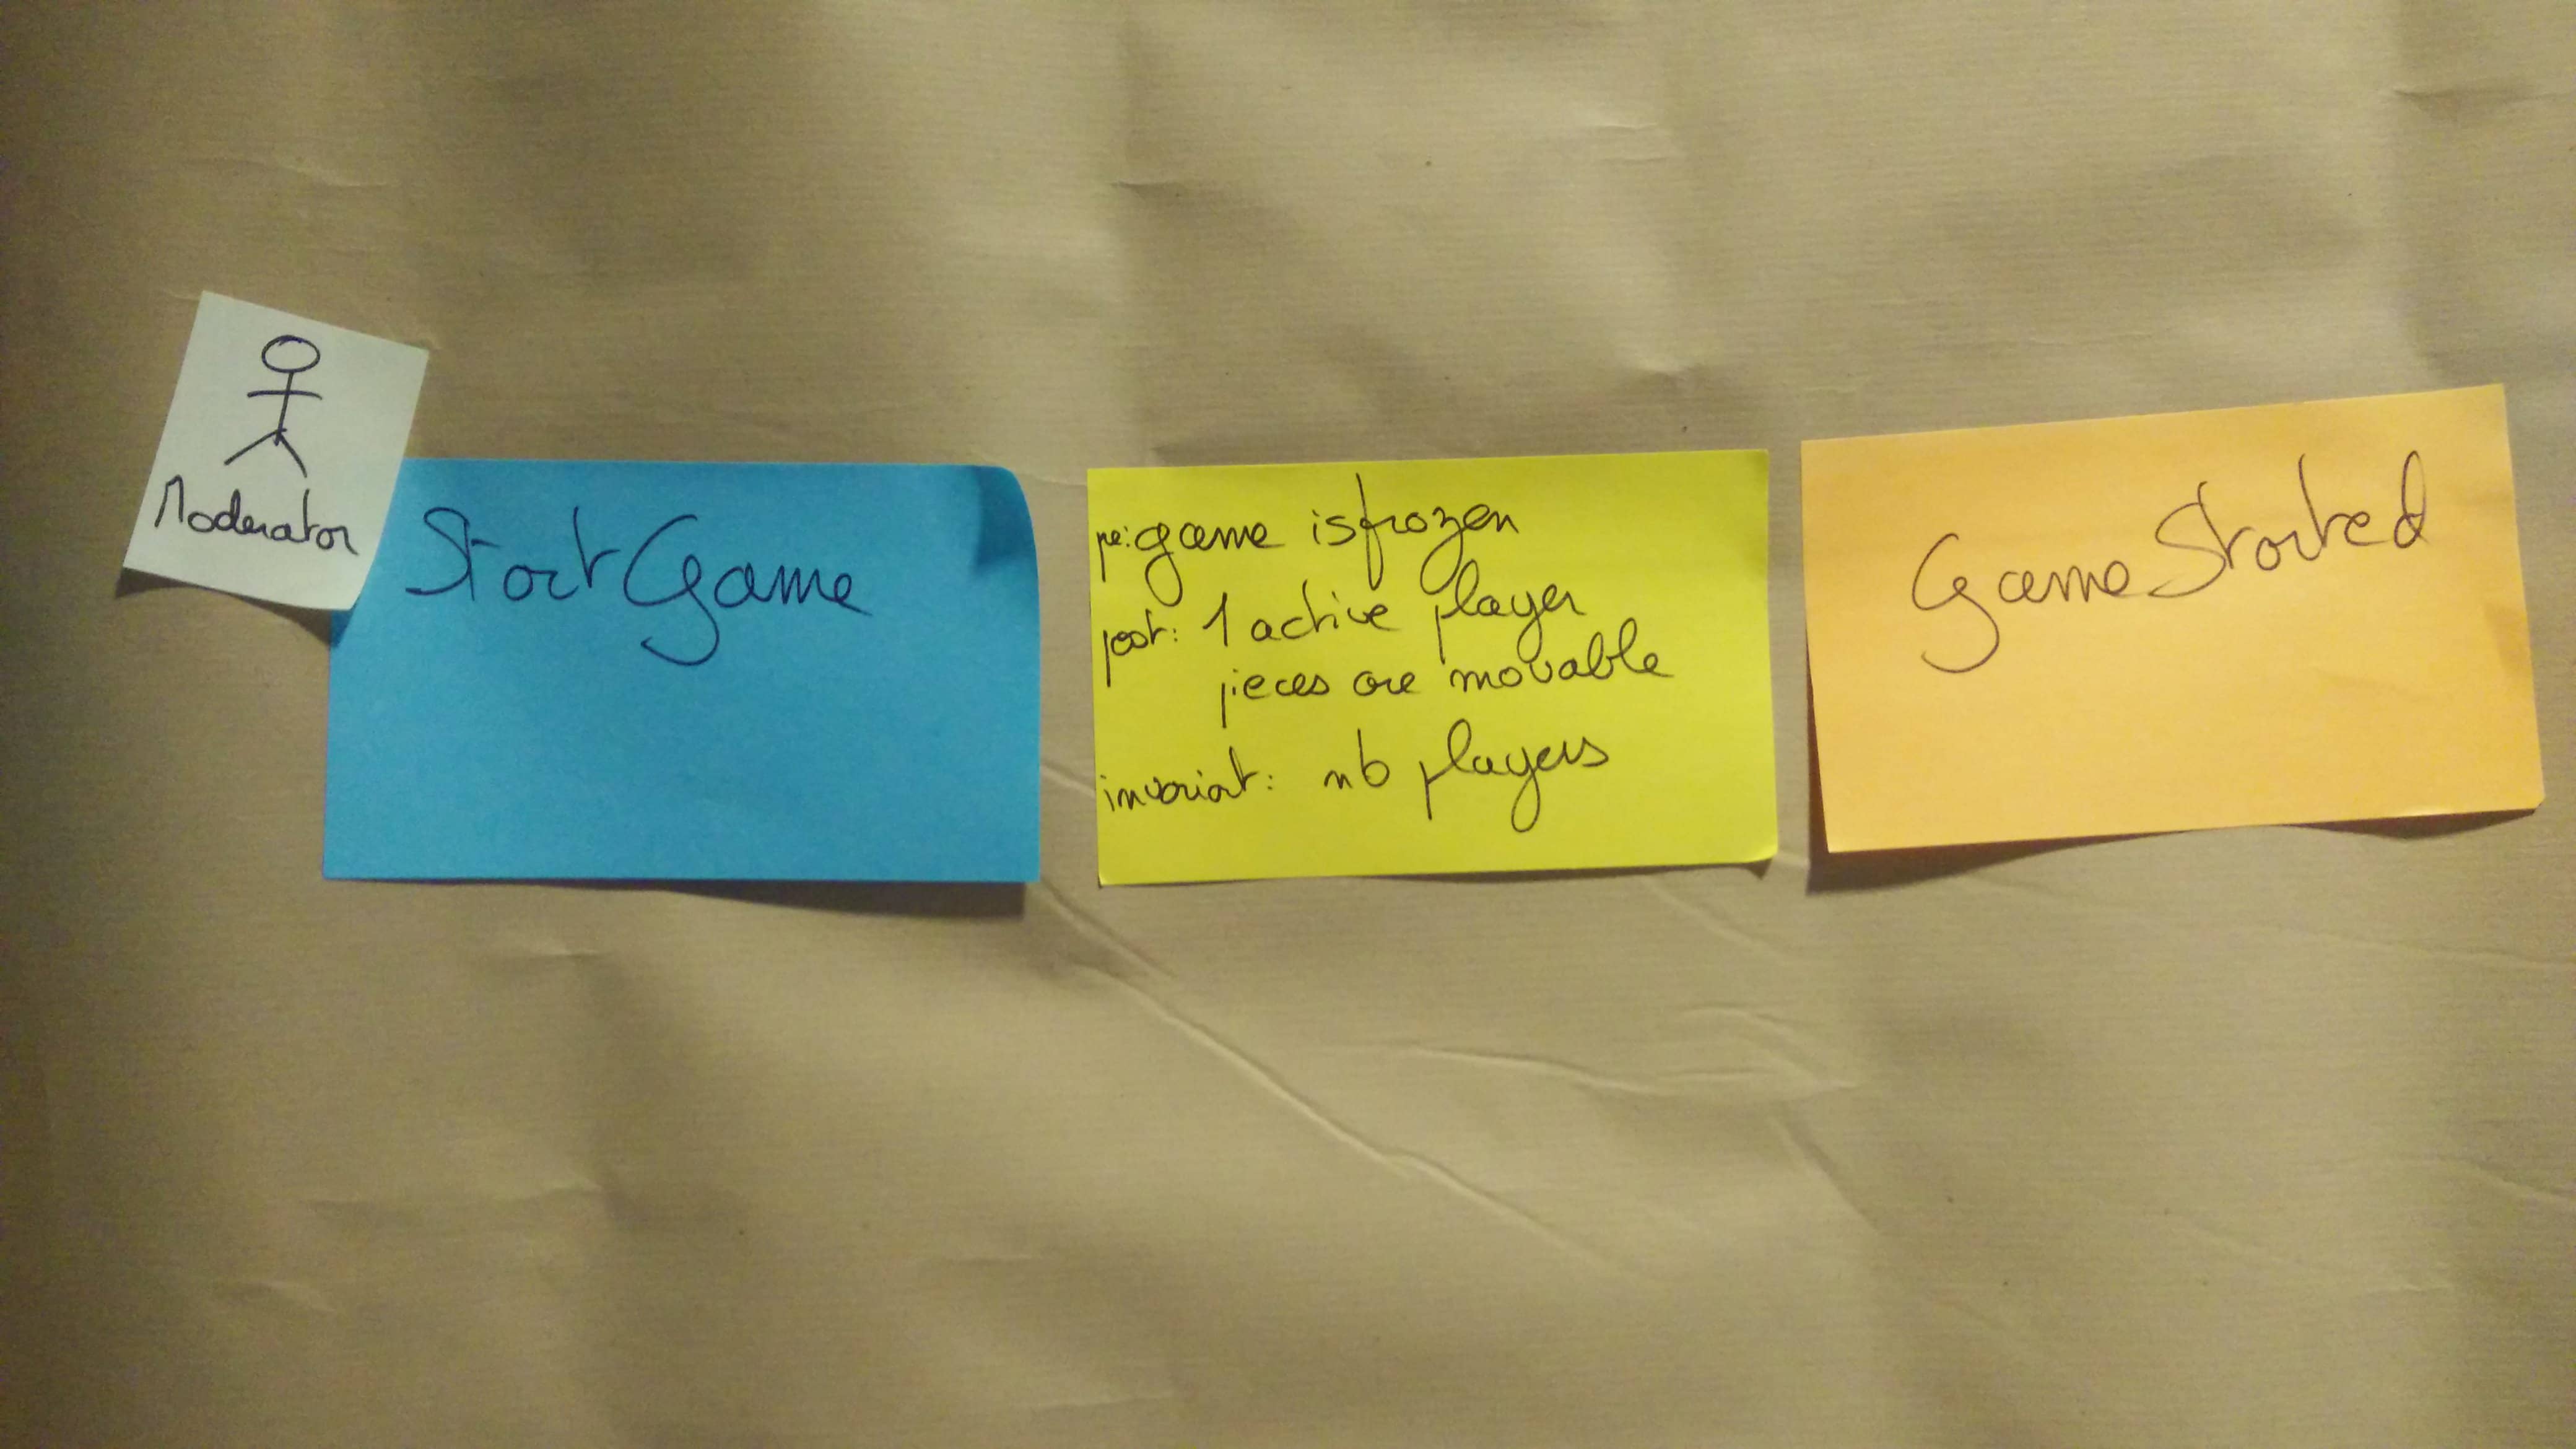 Moderator
StartGame
pre: game is frozen
post: 1 active player
pieces are movable
invariant: nb players
GameStarted